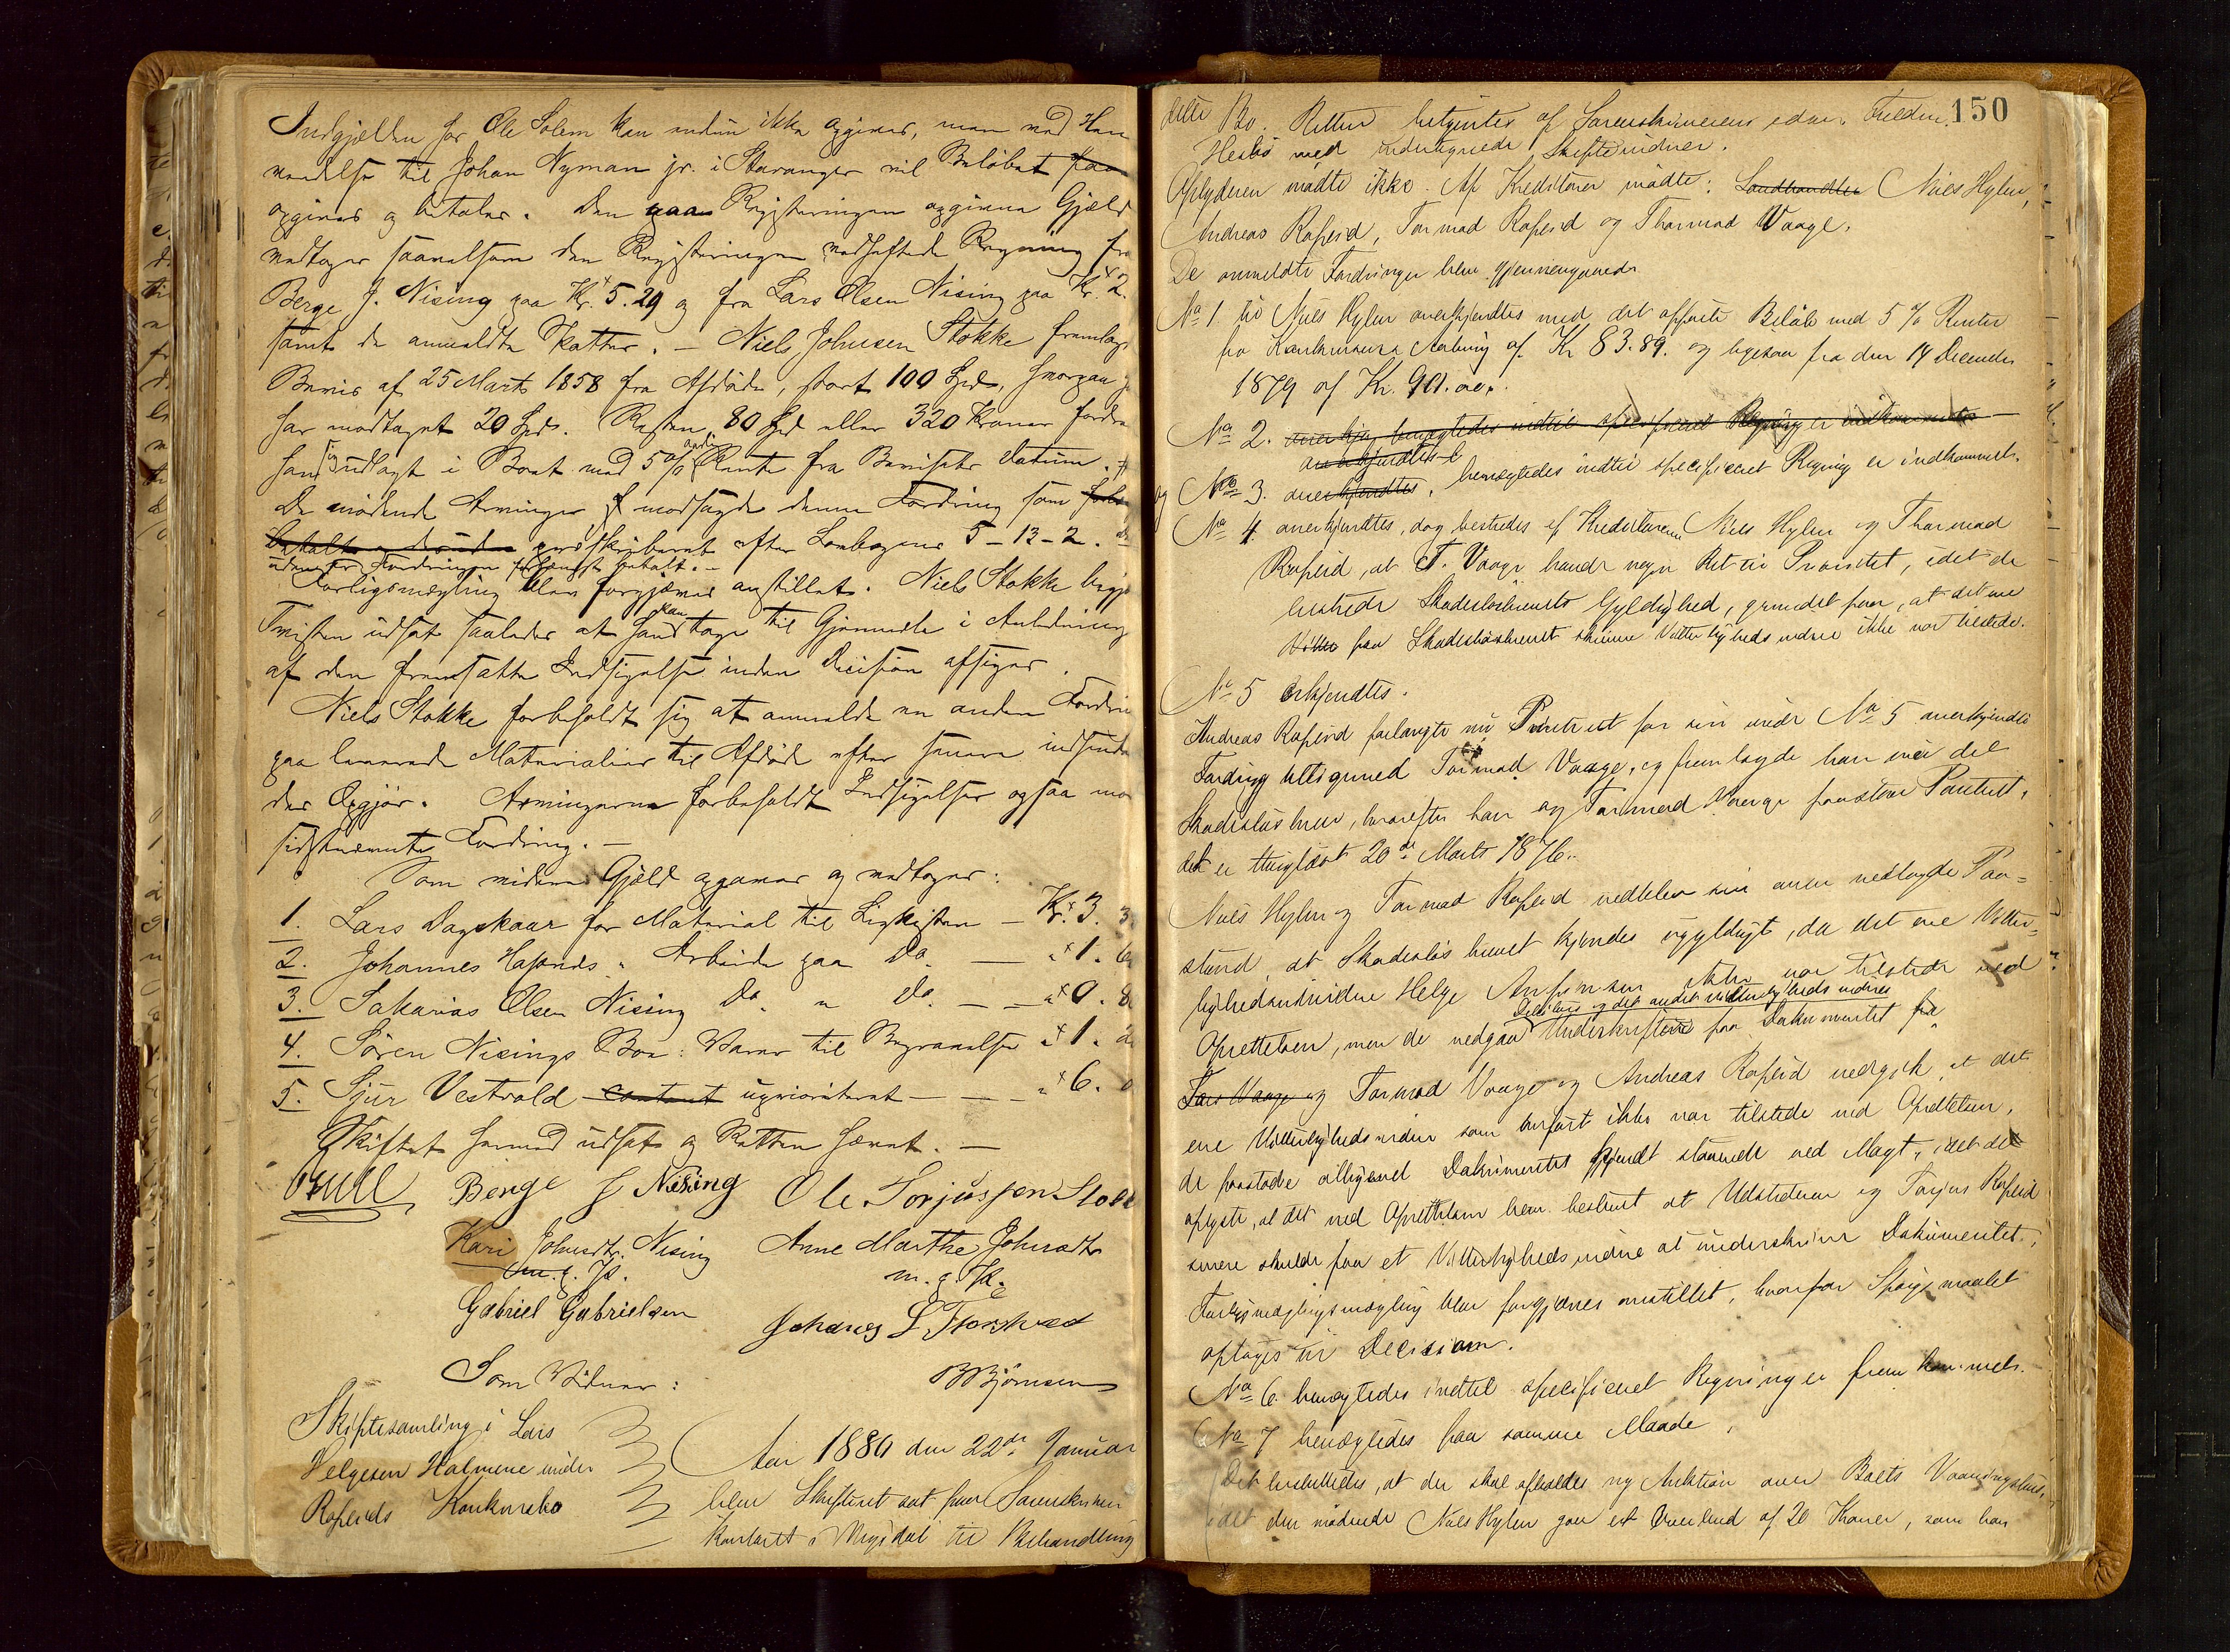 Indgjælden for Ole Solem kan endnu ikke opgives, men ved Hen
vendelse til Johan Nyman jr. i Stavanger vil Beløbet faa
opgives og betales. Den paa Registeringen opgivne Gjæld
vedtages saavelsom den Registeringen vedheftede Regning fra
Berge J. Nising paa Kr. 5.29 og fra Lars Olsen Nising paa Kr. 2.
samt de anmeldte Skatter. — Niels Johnsen Stokke fremlag
Bevis af 25 Marts 1858 fra Afdøde, stort 100 Spd, hvorpaa
har modtaget 20 Spd. Resten 80 Spd eller 320 Kroner fordre
han sig udlagt i Boet med 5 % Rente fra Bevisets Datum.
De mødende Arvinger modsagde denne Fordring som
betalt præskriberet efter Lovbogens 5-13-2.
uden er Fordringen forlængst betalt. —
Forligsmægling blev forgjæves anstillet. Niels Stokke begj
Tvisten udsat saaledes at han kan tage til Gjenmæle i Anledning
af den fremsatte Indsigelse inden Decision afsiges.
Niels Stokke forbeholdt sig at anmelde en anden Fordri
paa leverede Materialier til Afdøde efter senere indsende
des Opgjør. Arvingerne forbeholdt Indsigelser ogsaa mo
sidstnævnte Fordring. —
Som videre Gjæld opgaves og vedtages:
1. Lars Dagskaar for Material til Ligkisten — Kr. 3. 3
2. Johannes Hafsnds " Arbeide paa Do. — " 1. 6
3. Sakarias Olsen Nising Do. " Do. — " 0. 8
4. Søren Nisings Bo: Varer til Begravelse " 1. 2
5. Sjur Vestvold contant uprioriteret — " 6.
Skiftet hermed udsat og Retten hævet. —
Bull Berge J Nising Ole Torjussen Stole
Kari Johnsdtr. Nising Anne Marthe Johnsdtr
m. f. P. m. p. P.
Gabriel Gabrielsen Johanes L Torshved
Som Vidner: B Bjørnsen
Skiftesamling i Lars
Helgesen Holmene under
Ropeids Konkursbo
Aar 1880 den 22de Januar
blev Skifteret sat paa Sorenskriver
kontoret i Vigsdal til Behandling
150
dette Bo. Retten betjentes af Sorenskriverens edsv. Fuldm.
Hesbø med undertegnede Skiftevidner.
Opbyderen mødte ikke. Af Kreditorer mødte: Landhandler Niels Hylen,
Andreas Ropeid, Tormod Ropeid og Thormod Vaage.
De anmeldte Fordringer blev gjennemgaaede
No 1 til Niels Hylen anerkjendtes med det opførte Beløb med 5 % Renter
fra Konkursens Aabning af Kr 83.89. og ligesaa fra den 14 December
1879 af Kr. 90.00.
No 2. anerkj benægtedes indtil specificeret Regning er indkommet
anerkjendtes
og No 3. anerkjendtes, benægtedes indtil specificeret Regning er indkommet.
No 4 anerkjendtes, dog bestredes af Kreditorerne Niels Hylen og Thormod
Ropeid, at T. Vaage havde nogen Ret til Prioritet, idet de
bestrede Skadesløsbrevets Gyldighed, grundet paa, at det ene
Vitter paa Skadesløsbrevet skrevne Vitterlighedsvidne ikke var tilstede.
No 5 erkjendtes.
Andreas Ropeid forlangte nu Panteret for sin under No 5 anerkjendte
Fordring alligemed Tormod Vaage, og fremlagde han nu det
Skadesløsbrev, hvorefter han og Tormod Vaage paastaar Panteret,
det er thinglæst 20de Marts 1876.
Niels Hylen og Tormod Ropeid vedblev sin oven nedlagde Paa=
stand, at Skadesløsbrevet kjendes ugyldigt, da det ene Vitter=
lighedsvidne Helge ikke var tilstede ved
Oprettelsen, men de vedgaa Debitors og det andet vitterligheds vidnes Underskrifterne paa Dokumentet
Lars Vaage og Tormod Vaage og Andreas Ropeid vedgik, at det
ene Vitterlighedsvidne som anført ikke var tilstede ved Oprettelsen.
de paastode alligevel Dokumentet kjendt staaende ved Magt, idet de
oplyste, at det ved Oprettelsen blev bestemt at Udstederen og Torjus Ropeid
senere skulde faa et Vitterlighedsvidne at underskrive Dokumentet.
Forligsmæglingsmægling blev forgjæves anstillet, hvorfor Spørgsmaalet
optages til Decision.
No 6. benægtedes indtil specificeret Regning er fremkommet.
No 7 benægtedes paa samme Maade.
Det besluttedes, at der skal afholdes ny Auktion over Boets Vaaningshus,
idet den mødende Niels Hylen gav et Overbud af 20 Kroner, som han